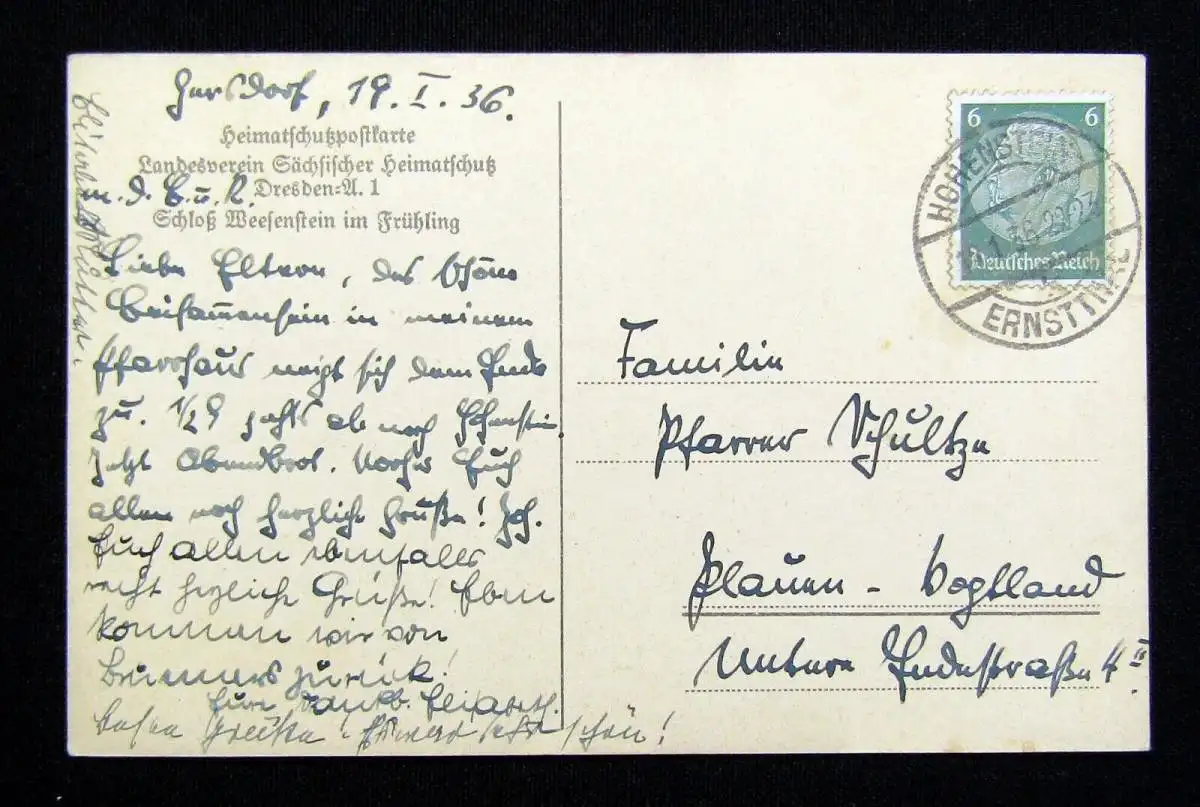 Gersdorf, 19. I. 36.
Heimatschutzpostkarte
Landesverein Sächsischer Heimatschutz
Dresden-A. 1
m. d. B. u. R.
Schloß Weesenstein im Frühling
Liebe Eltern, das schöne
Beisammensein in meinem
Pfarrhaus neigt sich dem Ende
zu. 1/2 9 gehts ab nach Hohenstein.
Jetzt Abendbrot. Vorher Euch
allen noch herzliche Grüße! Joh.
Euch allen ebenfalls
recht herzliche Grüße! Eben
kommen wir von
zurück!
Eure dankb. Elisabeth.
sehr schön!
6 6
Deutsches Reich
HOHENSTEIN
1.36
ERNSTTHAL
Familie
Pfarrer Schultze
Plauen - Vogtland
Untere Endestraße 4 II